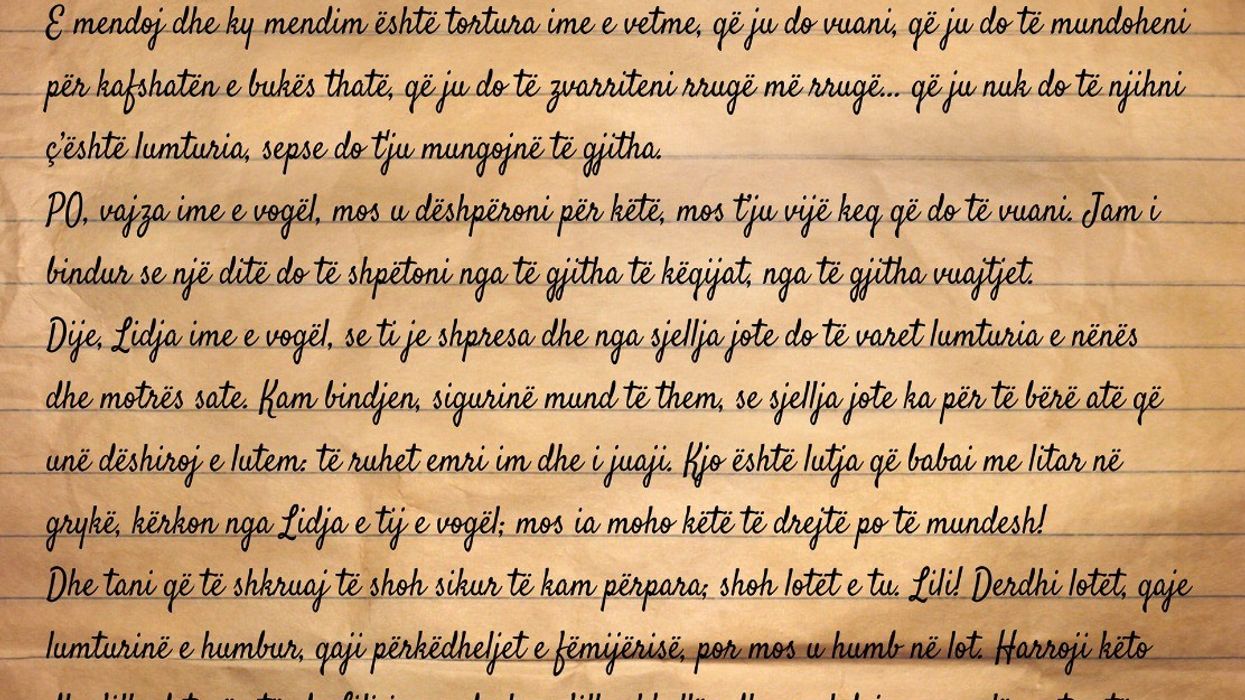 E mendoj dhe ky mendim është tortura ime e vetme, që ju do vuani, që ju do të mundoheni
për kafshatën e bukës thatë, që ju do të zvarriteni rrugë më rrugë... që ju nuk do të njihni
ç'është lumturia, sepse do t'ju mungojnë të gjitha.
PO, vajza ime e vogël, mos u dëshpëroni për këtë, mos t'ju vijë keq që do të vuani. Jam i
bindur se një ditë do të shpëtoni nga të gjitha të këqijat, nga të gjitha vuajtjet.
Dije, Lidja ime e vogël, se ti je shpresa dhe nga sjellja jote do të varet lumturia e nënës
dhe motrës sate. Kam bindjen, sigurinë mund të them, se sjellja jote ka për të bërë atë që
unë dëshiroj e lutem: të ruhet emri im dhe i juaji. Kjo është lutja që babai me litar në
grykë, kërkon nga Lidja e tij e vogël; mos ia moho këtë të drejtë po të mundesh!
Dhe tani që të shkruaj të shoh sikur të kam përpara; shoh lotët e tu. Lili! Derdhi lotët, qaje
lumturinë e humbur, qaji përkëdheljet e fëmijërisë, por mos u humb në lot. Harroji këto